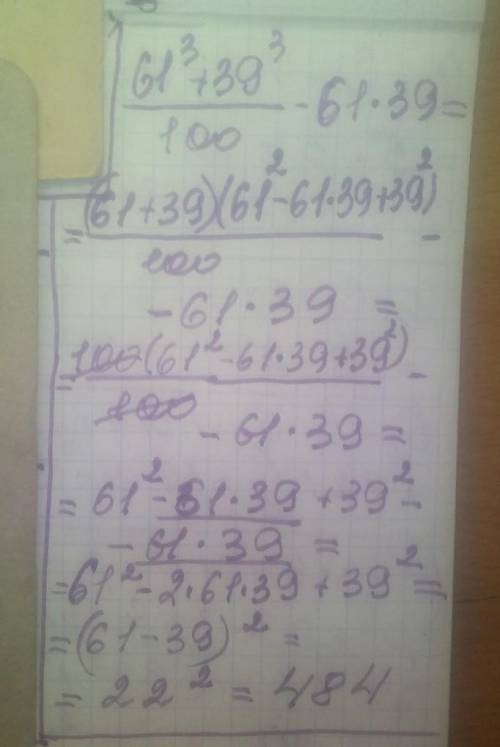 (61³+39³)/100 - 61·39 =
= (61+39)(61²-61·39+39²)/100 -
- 61·39 =
= 100(61²-61·39+39²)/100 -
- 61·39 =
= 61²-61·39+39²-
- 61·39 =
=61²-2·61·39+39²=
=(61-39)²=
= 22² = 484